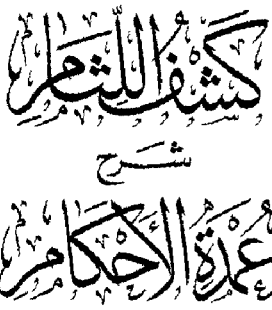 كَشْفُ اللِّثَامِ
شرح
عُمْدَةِ الأَحْكَامِ